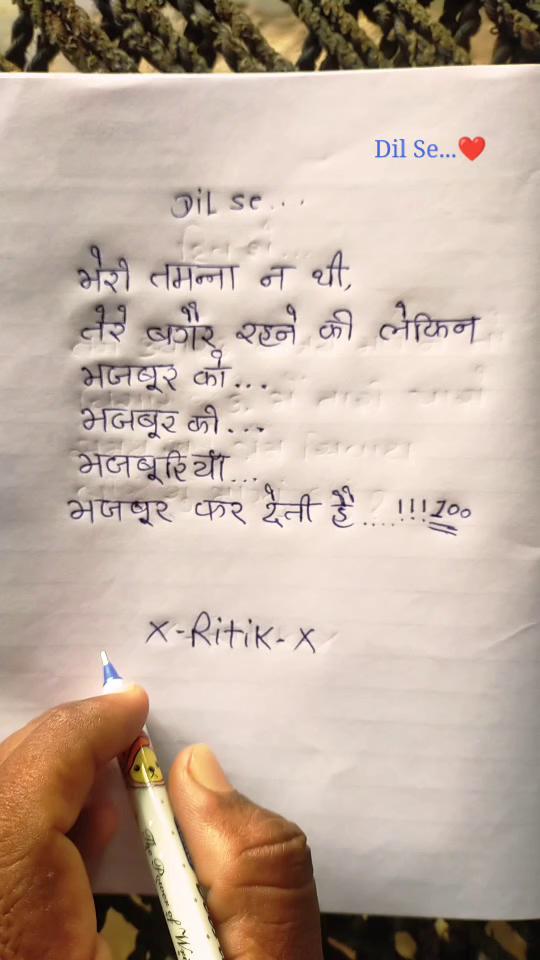 Dil Se...❤️
Dil se...
मेरी तमन्ना न थी,
तेरे बगैर रहने की लेकिन
मजबूर को...
मजबूर की...
मजबूरियाँ...
मजबूर कर देती है....!!!100
x-Ritik-x